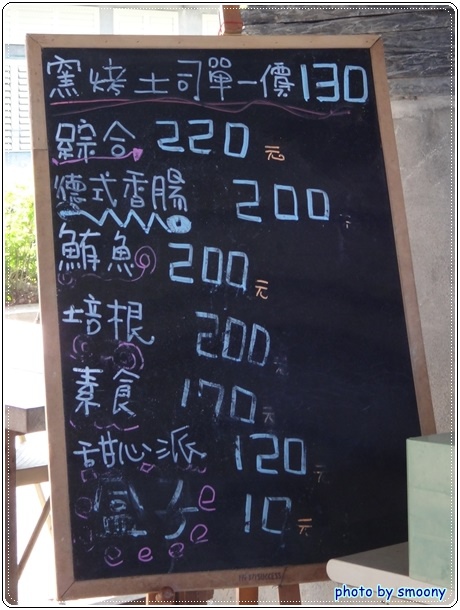 窯烤土司單一價130
綜合 220元
燻式香腸 200元
鮪魚 200元
培根 200元
素食 170元
甜心派 120元
盒子 10元
photo by smoony